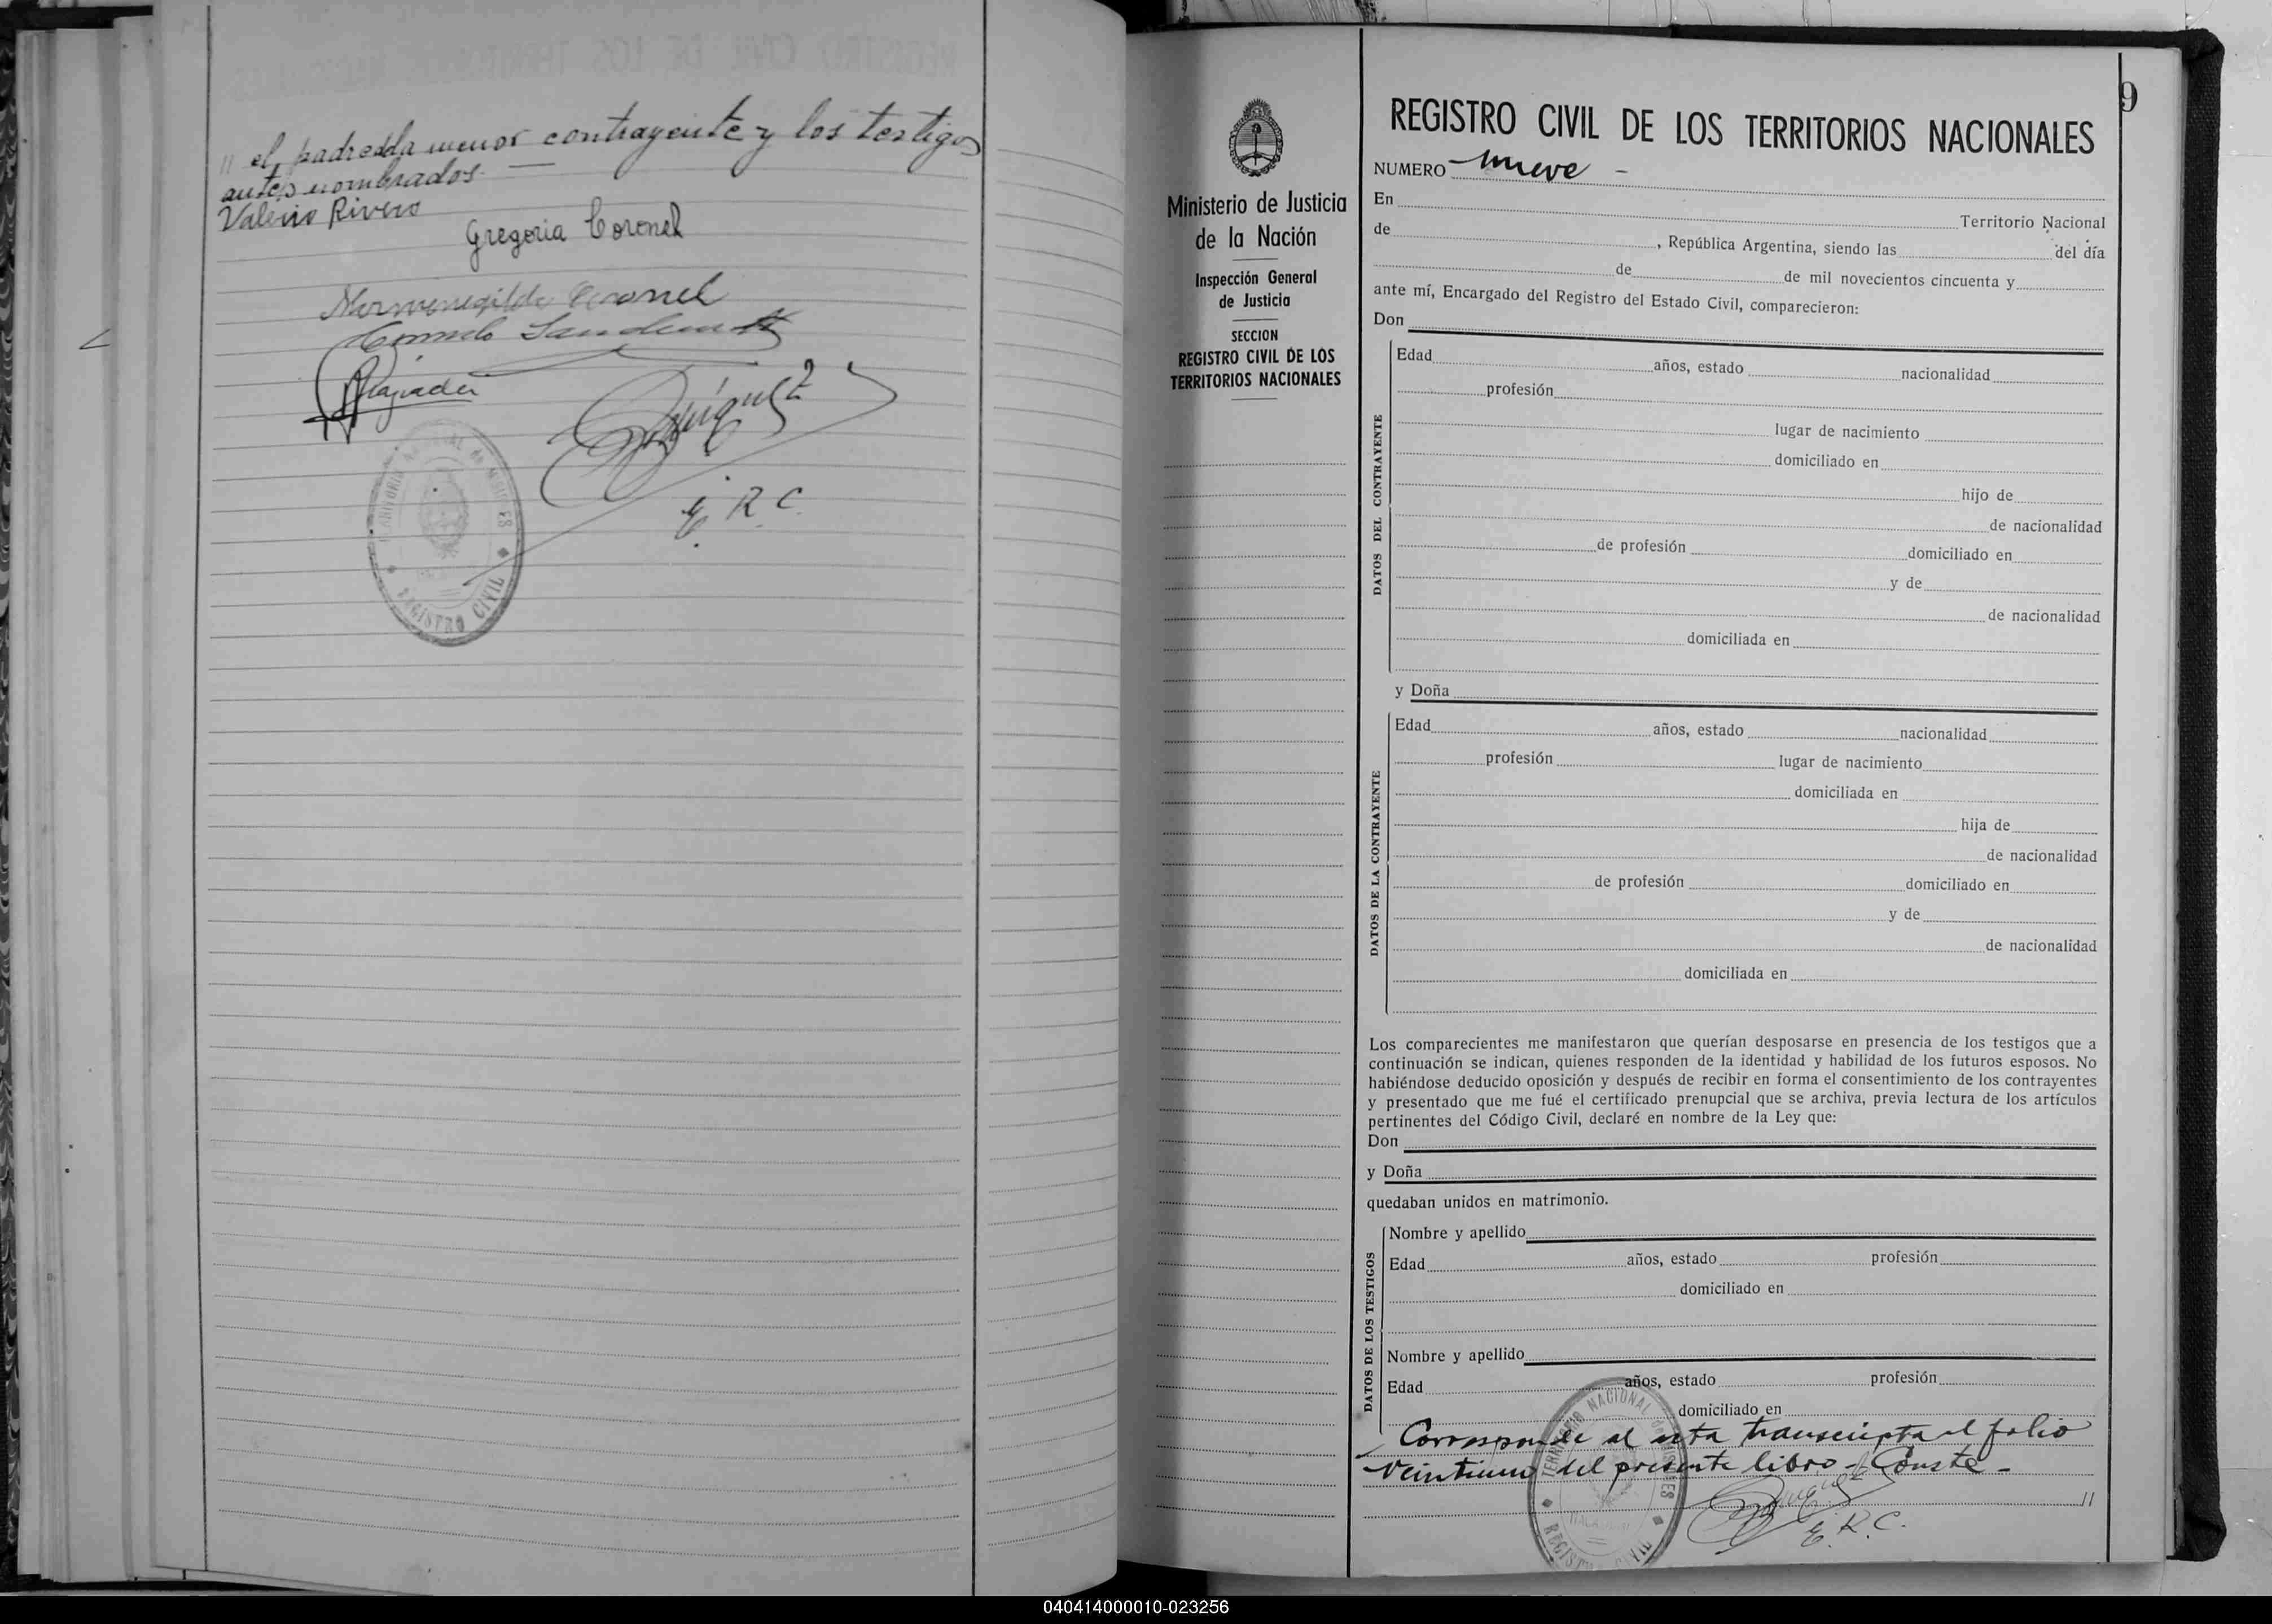 " el padre dela menor contrayente y los testigos
antes nombrados. —
Valerio Rivero
Gregoria Coronel
Hermenegildo Coronel
REGISTRO CIVIL
E. R. C.
Ministerio de Justicia
de la Nación
Inspección General
de Justicia
SECCION
REGISTRO CIVIL DE LOS
TERRITORIOS NACIONALES
9
REGISTRO CIVIL DE LOS TERRITORIOS NACIONALES
NUMERO nueve -
En Territorio Nacional
de , República Argentina, siendo las del día
de de mil novecientos cincuenta y
ante mí, Encargado del Registro del Estado Civil, comparecieron:
Don
DATOS DEL CONTRAYENTE
Edad años, estado nacionalidad
profesión
lugar de nacimiento
domiciliado en
hijo de
de nacionalidad
de profesión domiciliado en
y de
de nacionalidad
domiciliada en
y Doña
DATOS DE LA CONTRAYENTE
Edad años, estado nacionalidad
profesión lugar de nacimiento
domiciliada en
hija de
de nacionalidad
de profesión domiciliado en
y de
de nacionalidad
domiciliada en
Los comparecientes me manifestaron que querían desposarse en presencia de los testigos que a
continuación se indican, quienes responden de la identidad y habilidad de los futuros esposos. No
habiéndose deducido oposición y después de recibir en forma el consentimiento de los contrayentes
y presentado que me fué el certificado prenupcial que se archiva, previa lectura de los artículos
pertinentes del Código Civil, declaré en nombre de la Ley que:
Don
y Doña
quedaban unidos en matrimonio.
DATOS DE LOS TESTIGOS
Nombre y apellido
Edad años, estado profesión
domiciliado en
Nombre y apellido
Edad años, estado profesión
domiciliado en
Corresponde al acta transcripta al folio
veintiuno del presente libro - Conste -
//
TERRITORIO NACIONAL de MISIONES
REGISTRO CIVIL
E. R. C.
040414000010-023256